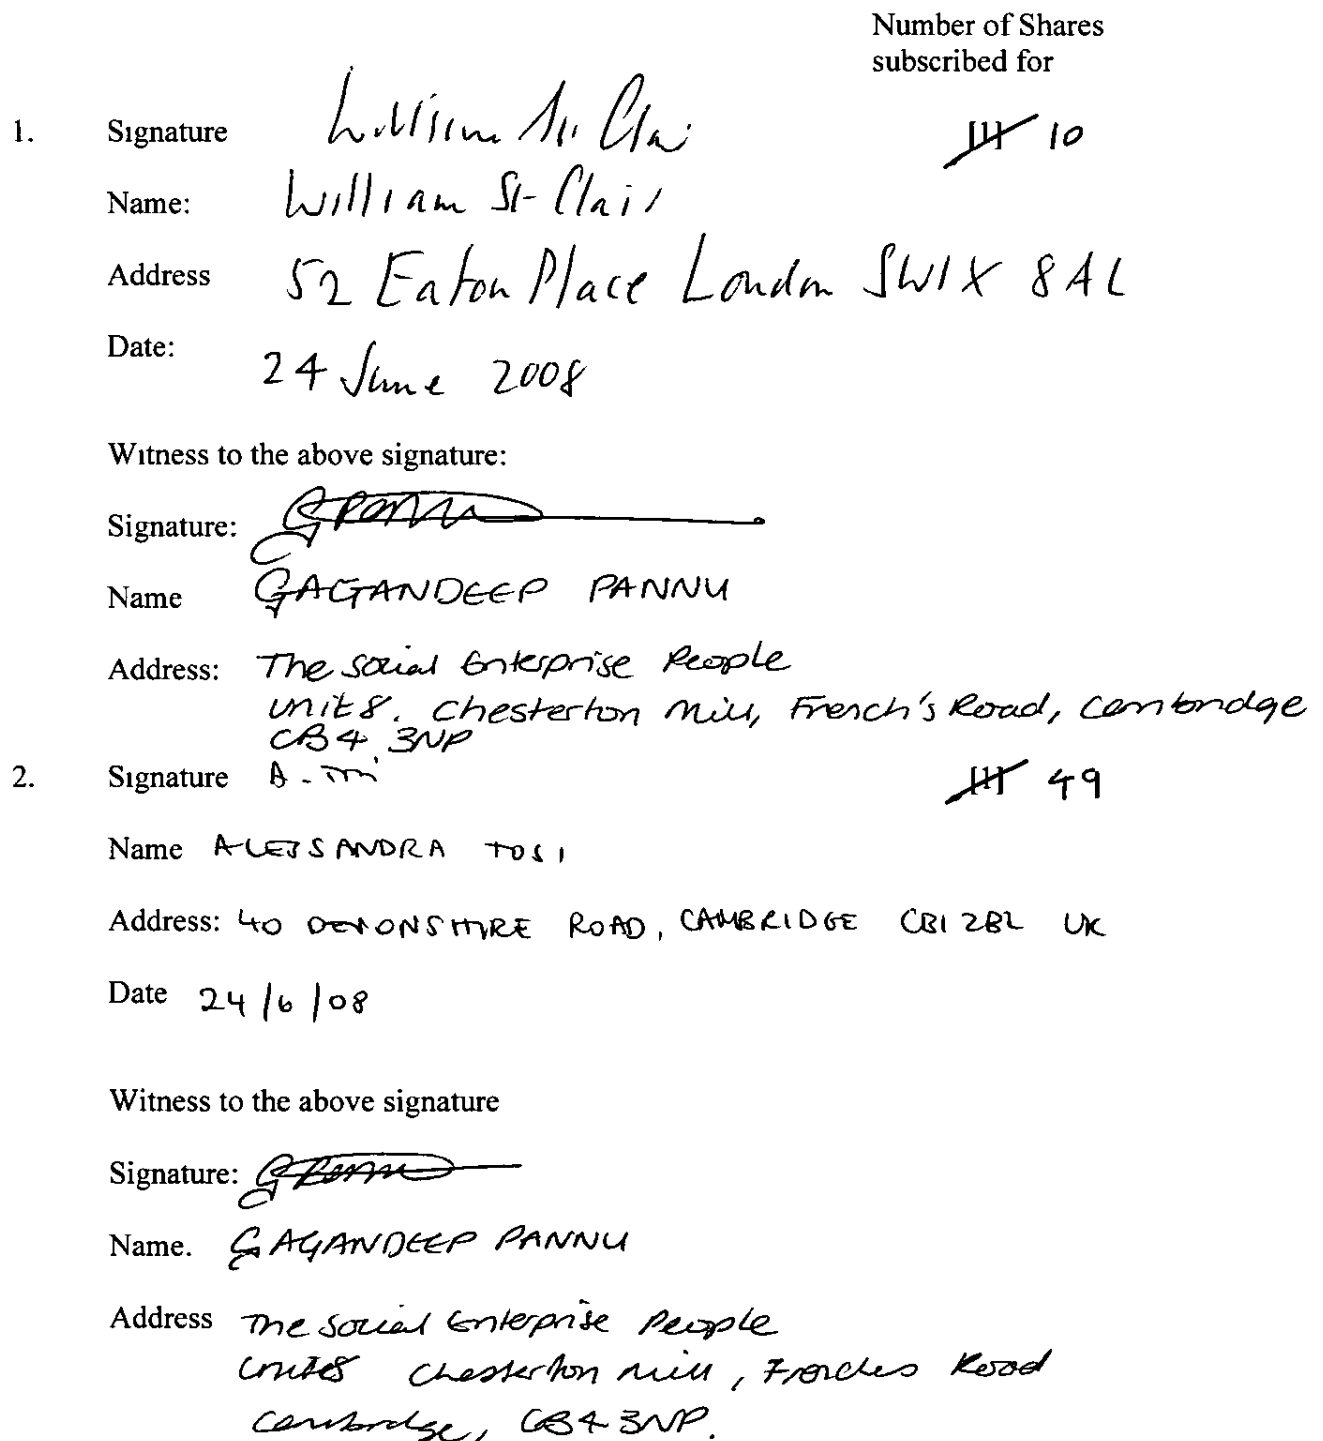 Number of Shares
subscribed for
1. Signature William St Clair [1] 10
Name: William St Clair
Address 52 Eaton Place London SW1X 8AL
Date: 24 June 2008
Witness to the above signature:
Signature: GPannu
Name GAGANDEEP PANNU
Address: The Social Enterprise People
Unit 8. Chesterton Mill, French's Road, Cambridge
CB4 3NP
2. Signature A. Tosi [1] 49
Name ALESSANDRA TOSI
Address: 40 DEVONSHIRE ROAD, CAMBRIDGE CB1 2BL UK
Date 24/6/08
Witness to the above signature
Signature: GPannu
Name. GAGANDEEP PANNU
Address The Social Enterprise People
Unit 8 Chesterton Mill, Frenches Road
Cambridge, CB4 3NP.